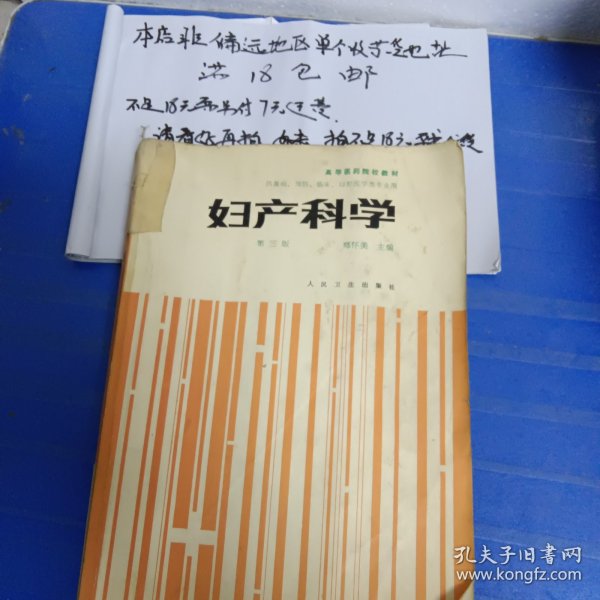 本店非偏远地区单个收货地址
满18包邮
不足18元需另付7元运费
请看好再拍
高等医药院校教材
供基础、预防、临床、口腔医学类专业用
妇产科学
第三版 郑怀美 主编
人民卫生出版社
孔夫子旧书网
www.kongfz.com